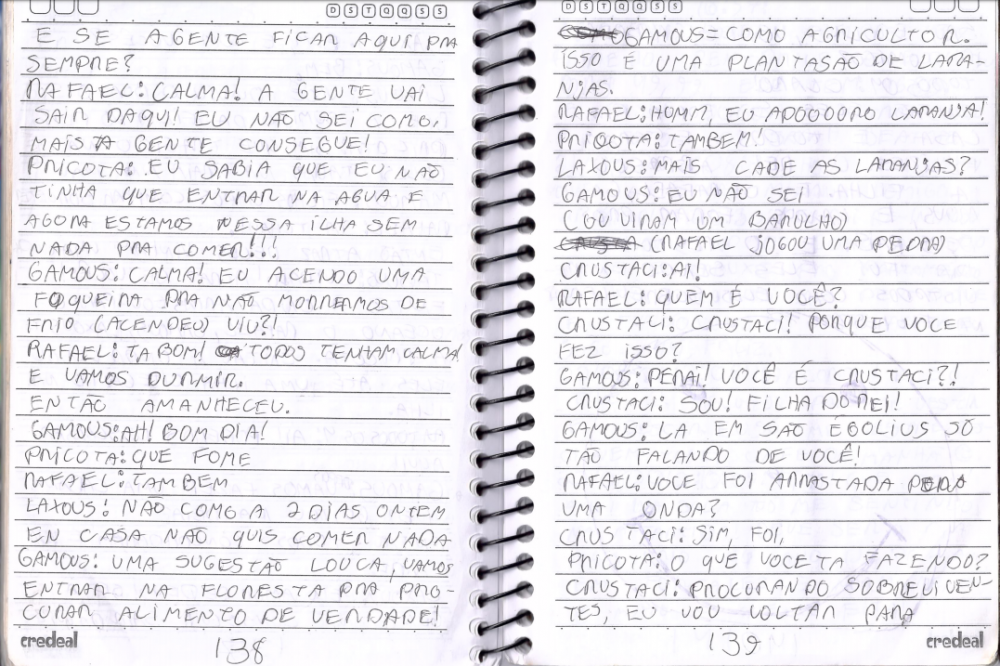 D S T Q Q S S
E SE A GENTE FICAR AQUI PRA
SEMPRE?
RAFAEL: CALMA! A GENTE VAI
SAIR DAQUI! EU NÃO SEI COMO,
MAIS A GENTE CONSEGUE!
PRICOTA: EU SABIA QUE EU NÃO
TINHA QUE ENTRAR NA AGUA. E
AGORA ESTAMOS NESSA ILHA SEM
NADA PRA COMER!!!
GAMOUS: CALMA! EU ACENDO UMA
FOQUEIRA PRA NÃO MORRERMOS DE
FRIO (ACENDEO) VIU?!
RAFAEL: TA BOM! TODOS TENHAM CALMA!
E VAMOS DURMIR.
ENTÃO AMANHECEU.
GAMOUS: AH! BOM DIA!
PRICOTA: QUE FOME
RAFAEL: TAMBEM
LAXOUS: NÃO COMO A 2 DIAS ONTEM
EN CASA NÃO QUIS COMER NADA
GAMOUS: UMA SUGESTÃO LOUCA, VAMOS
ENTRAR NA FLORESTA PRA PRO-
CURAR ALIMENTO DE VERDADE!
credeal
138
D S T Q Q S S
GAMOUS = COMO AGRICULTOR.
ISSO É UMA PLANTASÃO DE LARA-
NJAS.
RAFAEL: HUMM, EU ADOOOORO LARANJA!
PRIQOTA: TAMBEM!
LAXOUS: MAIS CADE AS LARANJAS?
GAMOUS: EU NÃO SEI
(OUVIRAM UM BARULHO)
(RAFAEL JOGOU UMA PEDRA)
CRUSTACI: AI!
RAFAEL: QUEM É VOCÊ?
CRUSTACI: CRUSTACI! PORQUE VOCE
FEZ ISSO?
GAMOUS: PERAI! VOCÊ É CRUSTACI?!
CRUSTACI: SOU! FILHA DO REI!
GAMOUS: LA EM SÃO ÉBOLIUS SÓ
TÃO FALANDO DE VOCÊ!
RAFAEL: VOCE FOI ARRASTADA PERA
UMA ONDA?
CRUSTACI: SIM, FOI,
PRICOTA: O QUE VOCE TA FAZENDO?
CRUSTACI: PROCURANDO SOBREVIVEN-
TES, EU VOU VOLTAR PARA
139
credeal